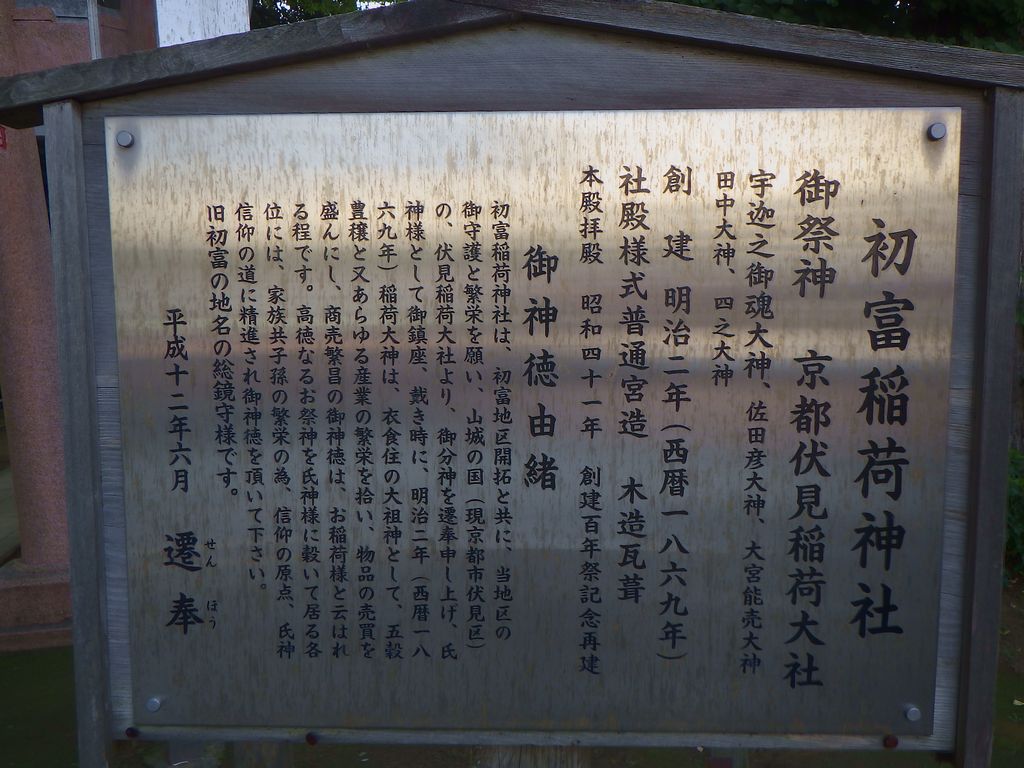 初富稲荷神社
御祭神 京都伏見稲荷大社
宇迦之御魂大神、佐田彦大神、大宮能売大神
田中大神、四之大神
創建 明治二年(西暦一八六九年)
社殿様式普通宮造 木造瓦葺
本殿拝殿 昭和四十一年 創建百年祭記念再建
御神徳由緒
初富稲荷神社は、初富地区開拓と共に、当地区の
御守護と繁栄を願い、山城の国(現京都市伏見区)
の、伏見稲荷大社より、御分神を遷奉申し上げ、氏
神様として御鎮座、戴き時に、明治二年(西暦一八
六九年)稲荷大神は、衣食住の大祖神として、五穀
豊穣と又あらゆる産業の繁栄を拾い、物品の売買を
盛んにし、商売繁昌の御神徳は、お稲荷様と云はれ
る程です。高徳なるお祭神を氏神様に穀いて居る各
位には、家族共子孫の繁栄の為、信仰の原点、氏神
信仰の道に精進され御神徳を頂いて下さい。
旧初富の地名の総鏡守様です。
平成十二年六月 遷奉
せんほう